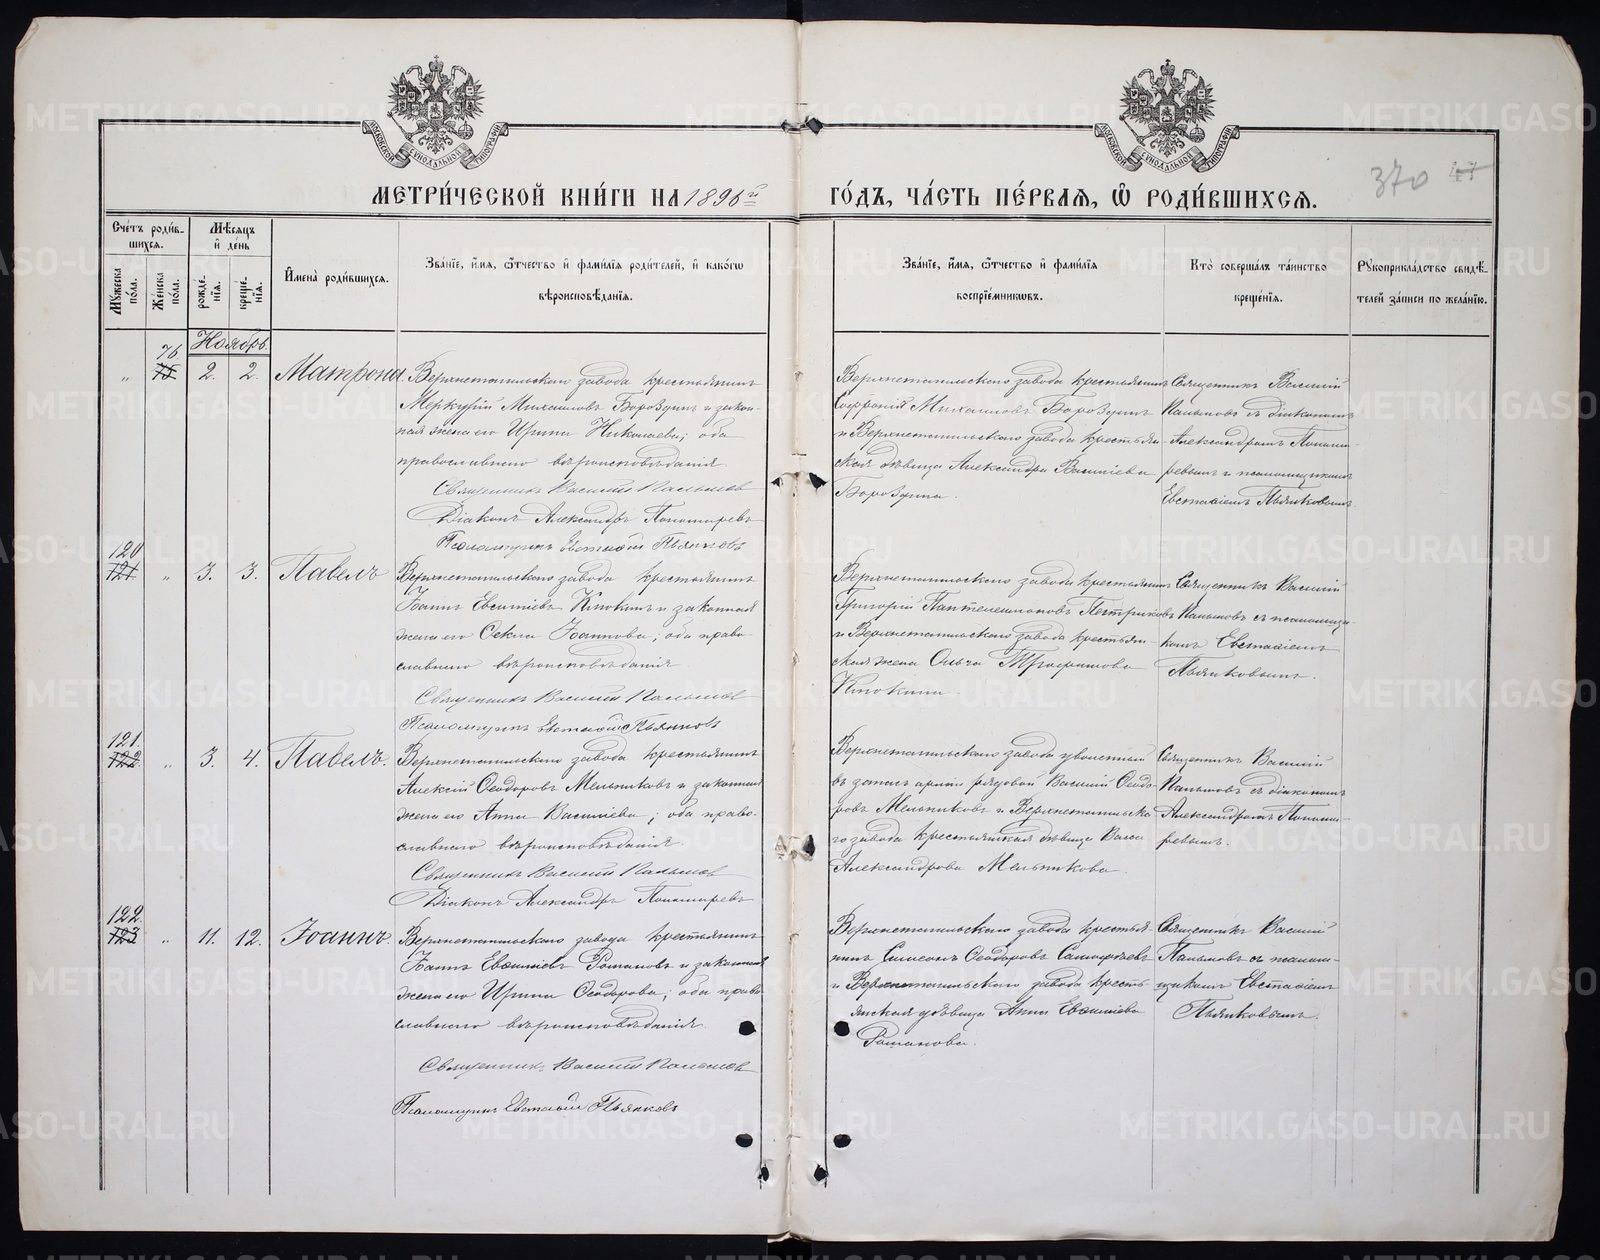 МЕТРИ́ЧЕСКОЙ КНИ́ГИ НА 1896й ГО́ДЪ, ЧА́СТЬ ПЕ́РВАЯ, Ѽ РОДИ́ВШИХСЯ.
370 47
Сче́тъ роди́вшихся.
Мꙋжеска по́ла.
Же́нска по́ла.
Мѣ́сяцъ и҆ де́нь
рожде́нїѧ.
креще́нїѧ.
И҆мена̀ роди́вшихсѧ.
Зва́нїе, и҆́мѧ, ѻ҆́тчество и҆ фами́лїѧ роди́телей, и҆ како́гѡ
вѣроисповѣ́данїѧ.
Зва́нїе, и҆́мѧ, ѻ҆́тчество и҆ фами́лїѧ
воспрїе́мникѡвъ.
Кто̀ соверша́лъ та́инство
креще́нїѧ.
Рꙋкоприкла́дство свидѣ́-
телей за́писи по жела́нїю.
Ноябрь
76.
„ 75 2. 2. Матрона
Верхнетагильскаго завода крестьянинъ
Меркурій Михаиловъ Бороздинъ и закон-
ная жена его Ирина Николаева; оба
православнаго вѣроисповѣданія.
Священникъ Василій
Діаконъ Александръ Пономаревъ
Псаломщикъ Евстафій Пьянковъ
Верхнетагильскаго завода крестьянинъ
Софроній Михаиловъ Бороздинъ
и Верхнетагильскаго завода крестьян-
ская дѣвица Александра Василіева
Бороздина.
Священникъ Василій
съ діакономъ
Александромъ Понома-
ревымъ и псаломщикомъ
Евстафіемъ Пьянковымъ
120
121 „ 3. 3. Павелъ
Верхнетагильскаго завода крестьянинъ
Іоаннъ и законная
жена его Ѳекла Іоаннова; оба право-
славнаго вѣроисповѣданія.
Священникъ Василій
Псаломщикъ Евстафій Пьянковъ
Верхнетагильскаго завода крестьянинъ
Григорій Пантелеимоновъ
и Верхнетагильскаго завода крестьян-
ская жена Ольга Трофимова
Священникъ Василій
съ псаломщи-
комъ Евстафіемъ
Пьянковымъ.
121.
122. „ 3. 4. Павелъ.
Верхнетагильскаго завода крестьянинъ
Алексій Ѳеодоровъ Мельниковъ и законная
жена его Анна Василіева; оба право-
славнаго вѣроисповѣданія.
Священникъ Василій
Діаконъ Александръ Пономаревъ
Верхнетагильскаго завода уволенный
въ запасъ арміи рядовой Василій Ѳеодо-
ровъ Мельниковъ и Верхнетагильска-
го завода крестьянская дѣвица Васса
Александрова Мельникова.
Священникъ Василій
съ діакономъ
Александромъ Понома-
ревымъ.
122.
123 „ 11. 12. Іоаннъ.
Верхнетагильскаго завода крестьянинъ
Іоаннъ Романовъ и законная
жена его Ирина Ѳеодорова; оба право-
славнаго вѣроисповѣданія.
Священникъ Василій
Псаломщикъ Евстафій Пьянковъ
Верхнетагильскаго завода крестья-
нинъ Симеонъ Ѳеодоровъ
и Верхнетагильскаго завода кресть-
янская дѣвица Анна
Романова.
Священникъ Василій
съ псалом-
щикомъ Евстафіемъ
Пьянковымъ.